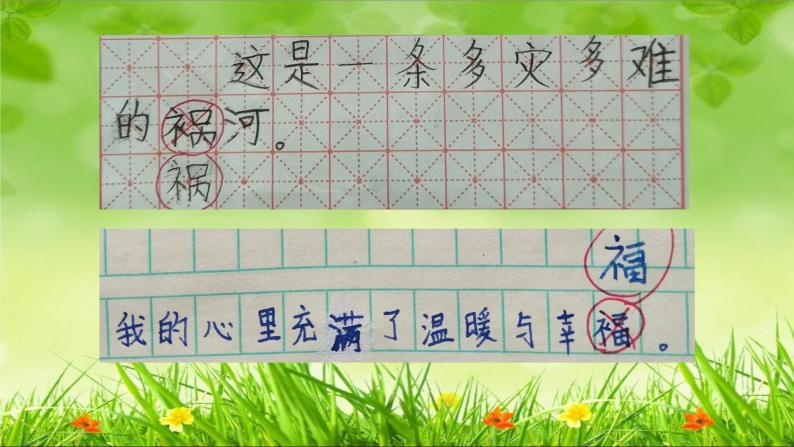 这是一条多灾多难
的祸河。
祸
福
我的心里充满了温暖与幸褔。